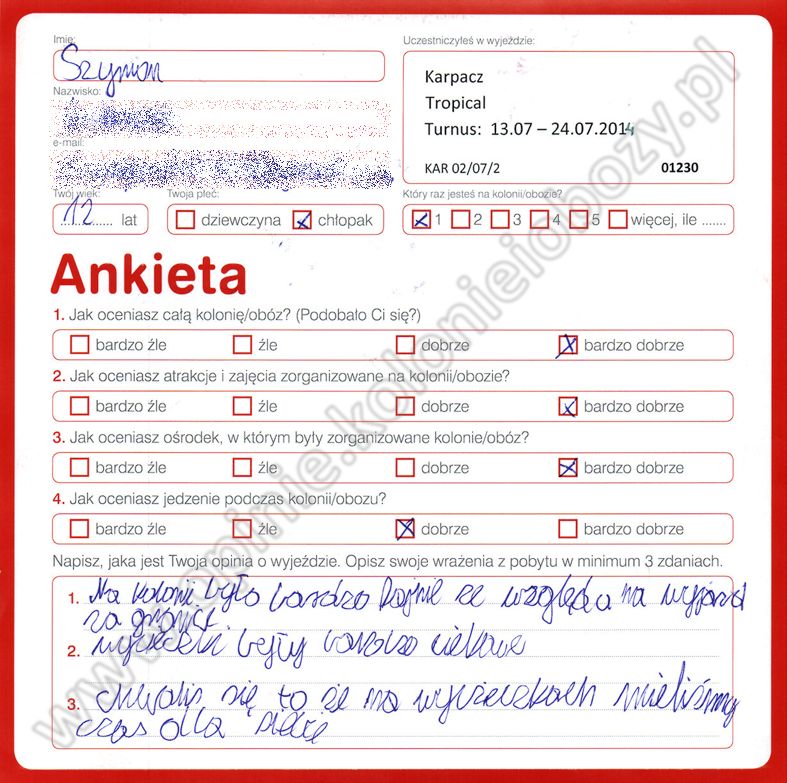 Imię:
Szymon
Nazwisko:
e-mail:
Uczestniczyłeś w wyjeździe:
Karpacz
Tropical
Turnus: 13.07 – 24.07.2014
KAR 02/07/2 01230
Twój wiek: Twoja płeć: Który raz jesteś na kolonii/obozie?
12 lat dziewczyna chłopak 1 2 3 4 5 więcej, ile .......
Ankieta
1. Jak oceniasz całą kolonię/obóz? (Podobało Ci się?)
bardzo źle źle dobrze bardzo dobrze
2. Jak oceniasz atrakcje i zajęcia zorganizowane na kolonii/obozie?
bardzo źle źle dobrze bardzo dobrze
3. Jak oceniasz ośrodek, w którym były zorganizowane kolonie/obóz?
bardzo źle źle dobrze bardzo dobrze
4. Jak oceniasz jedzenie podczas kolonii/obozu?
bardzo źle źle dobrze bardzo dobrze
Napisz, jaka jest Twoja opinia o wyjeździe. Opisz swoje wrażenia z pobytu w minimum 3 zdaniach.
1. Na kolonii było bardzo fajnie ze względu na wyjazd
za granicę
2. wycieczki były bardzo ciekawe
3. się to że na wycieczkach mieliśmy
czas dla siebie
www.opinie.kolonieiobozy.pl